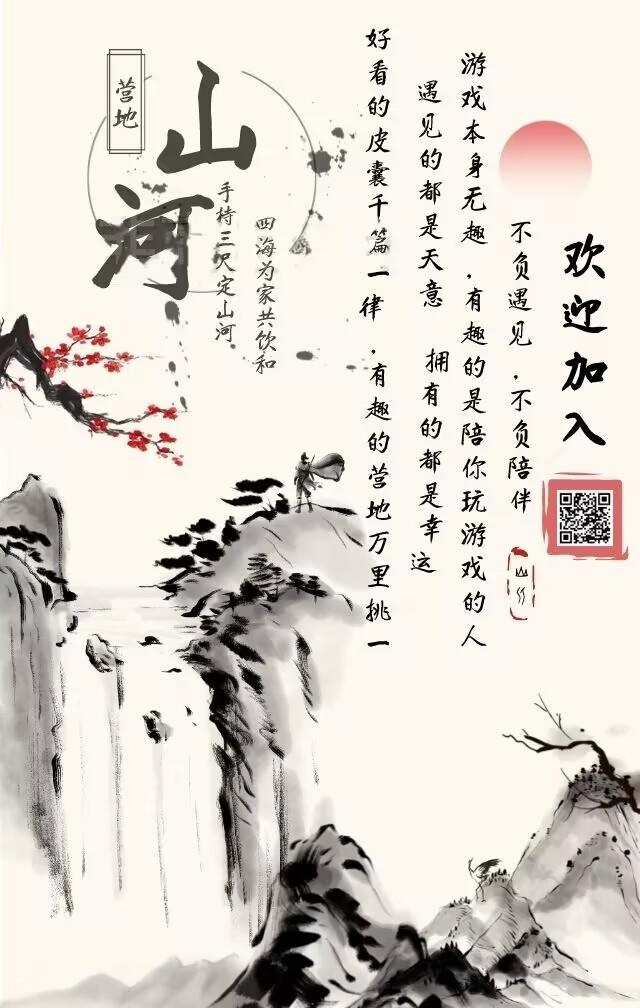 欢迎加入
不负遇见，不负陪伴
游戏本身无趣，有趣的是陪你玩游戏的人
遇见的都是天意
拥有的都是幸运
好看的皮囊千篇一律，有趣的营地万里挑一
四海为家共饮和
手持三尺定山河
山河
营地